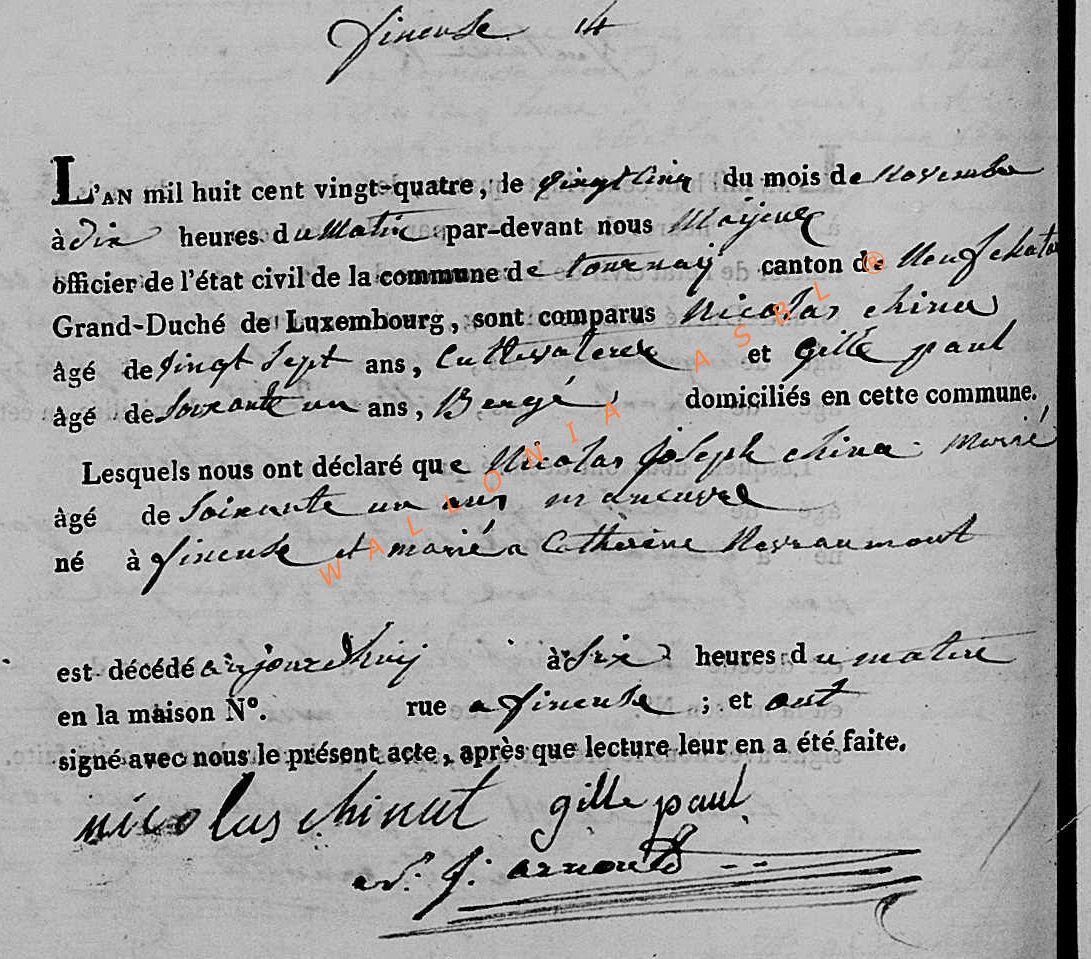 fineuse 14
L'AN mil huit cent vingt-quatre, le vingt cinq du mois de Novembre
à dix heures du Matin par-devant nous
officier de l'état civil de la commune de tournay canton de Neufchatau
Grand-Duché de Luxembourg, sont comparus Nicolas china
âgé de vingt sept ans, Cultivatere et gille paul
âgé de soixante un ans, Bergé domiciliés en cette commune.
Lesquels nous ont déclaré que Nicolas joseph china marié
âgé de soixante un ans maneuvre
né à fineuse et marié a Catherine Nevraumont
est décédé aujourdhuij à six heures du matin
en la maison N°. rue a fineuse ; et ont
signé avec nous le présent acte, après que lecture leur en a été faite.
nicolas chinut gille paul
j. arnould
WALLONIA ASBL ®